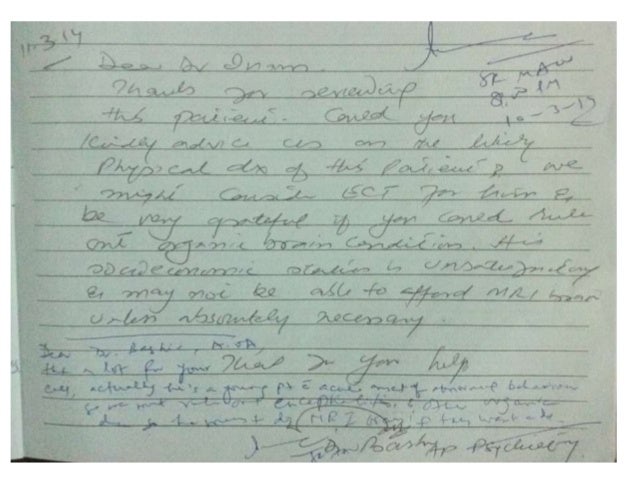 11.3.14
Dear Dr Inam.
Thanks for reviewing
this patient. Could you
Kindly advice us on the likely
Physical dx of this Patient, we
might consider ECT for him &
be very grateful if you could rule
out organic brain condition. His
socioeconomic status is unsatisfactory
& may not be able to afford MRI brain
unless absolutely necessary.
Dear Dr. Bashir, A.OA,
thx a lot for your
Thank for you help
call, actually he's a young pt c acute onset of abnormal behaviour
so we must rule out encephalitis & other organic
so he must do MRI brain if they want
Dr Bashir AP Psychiatry
10-3-14